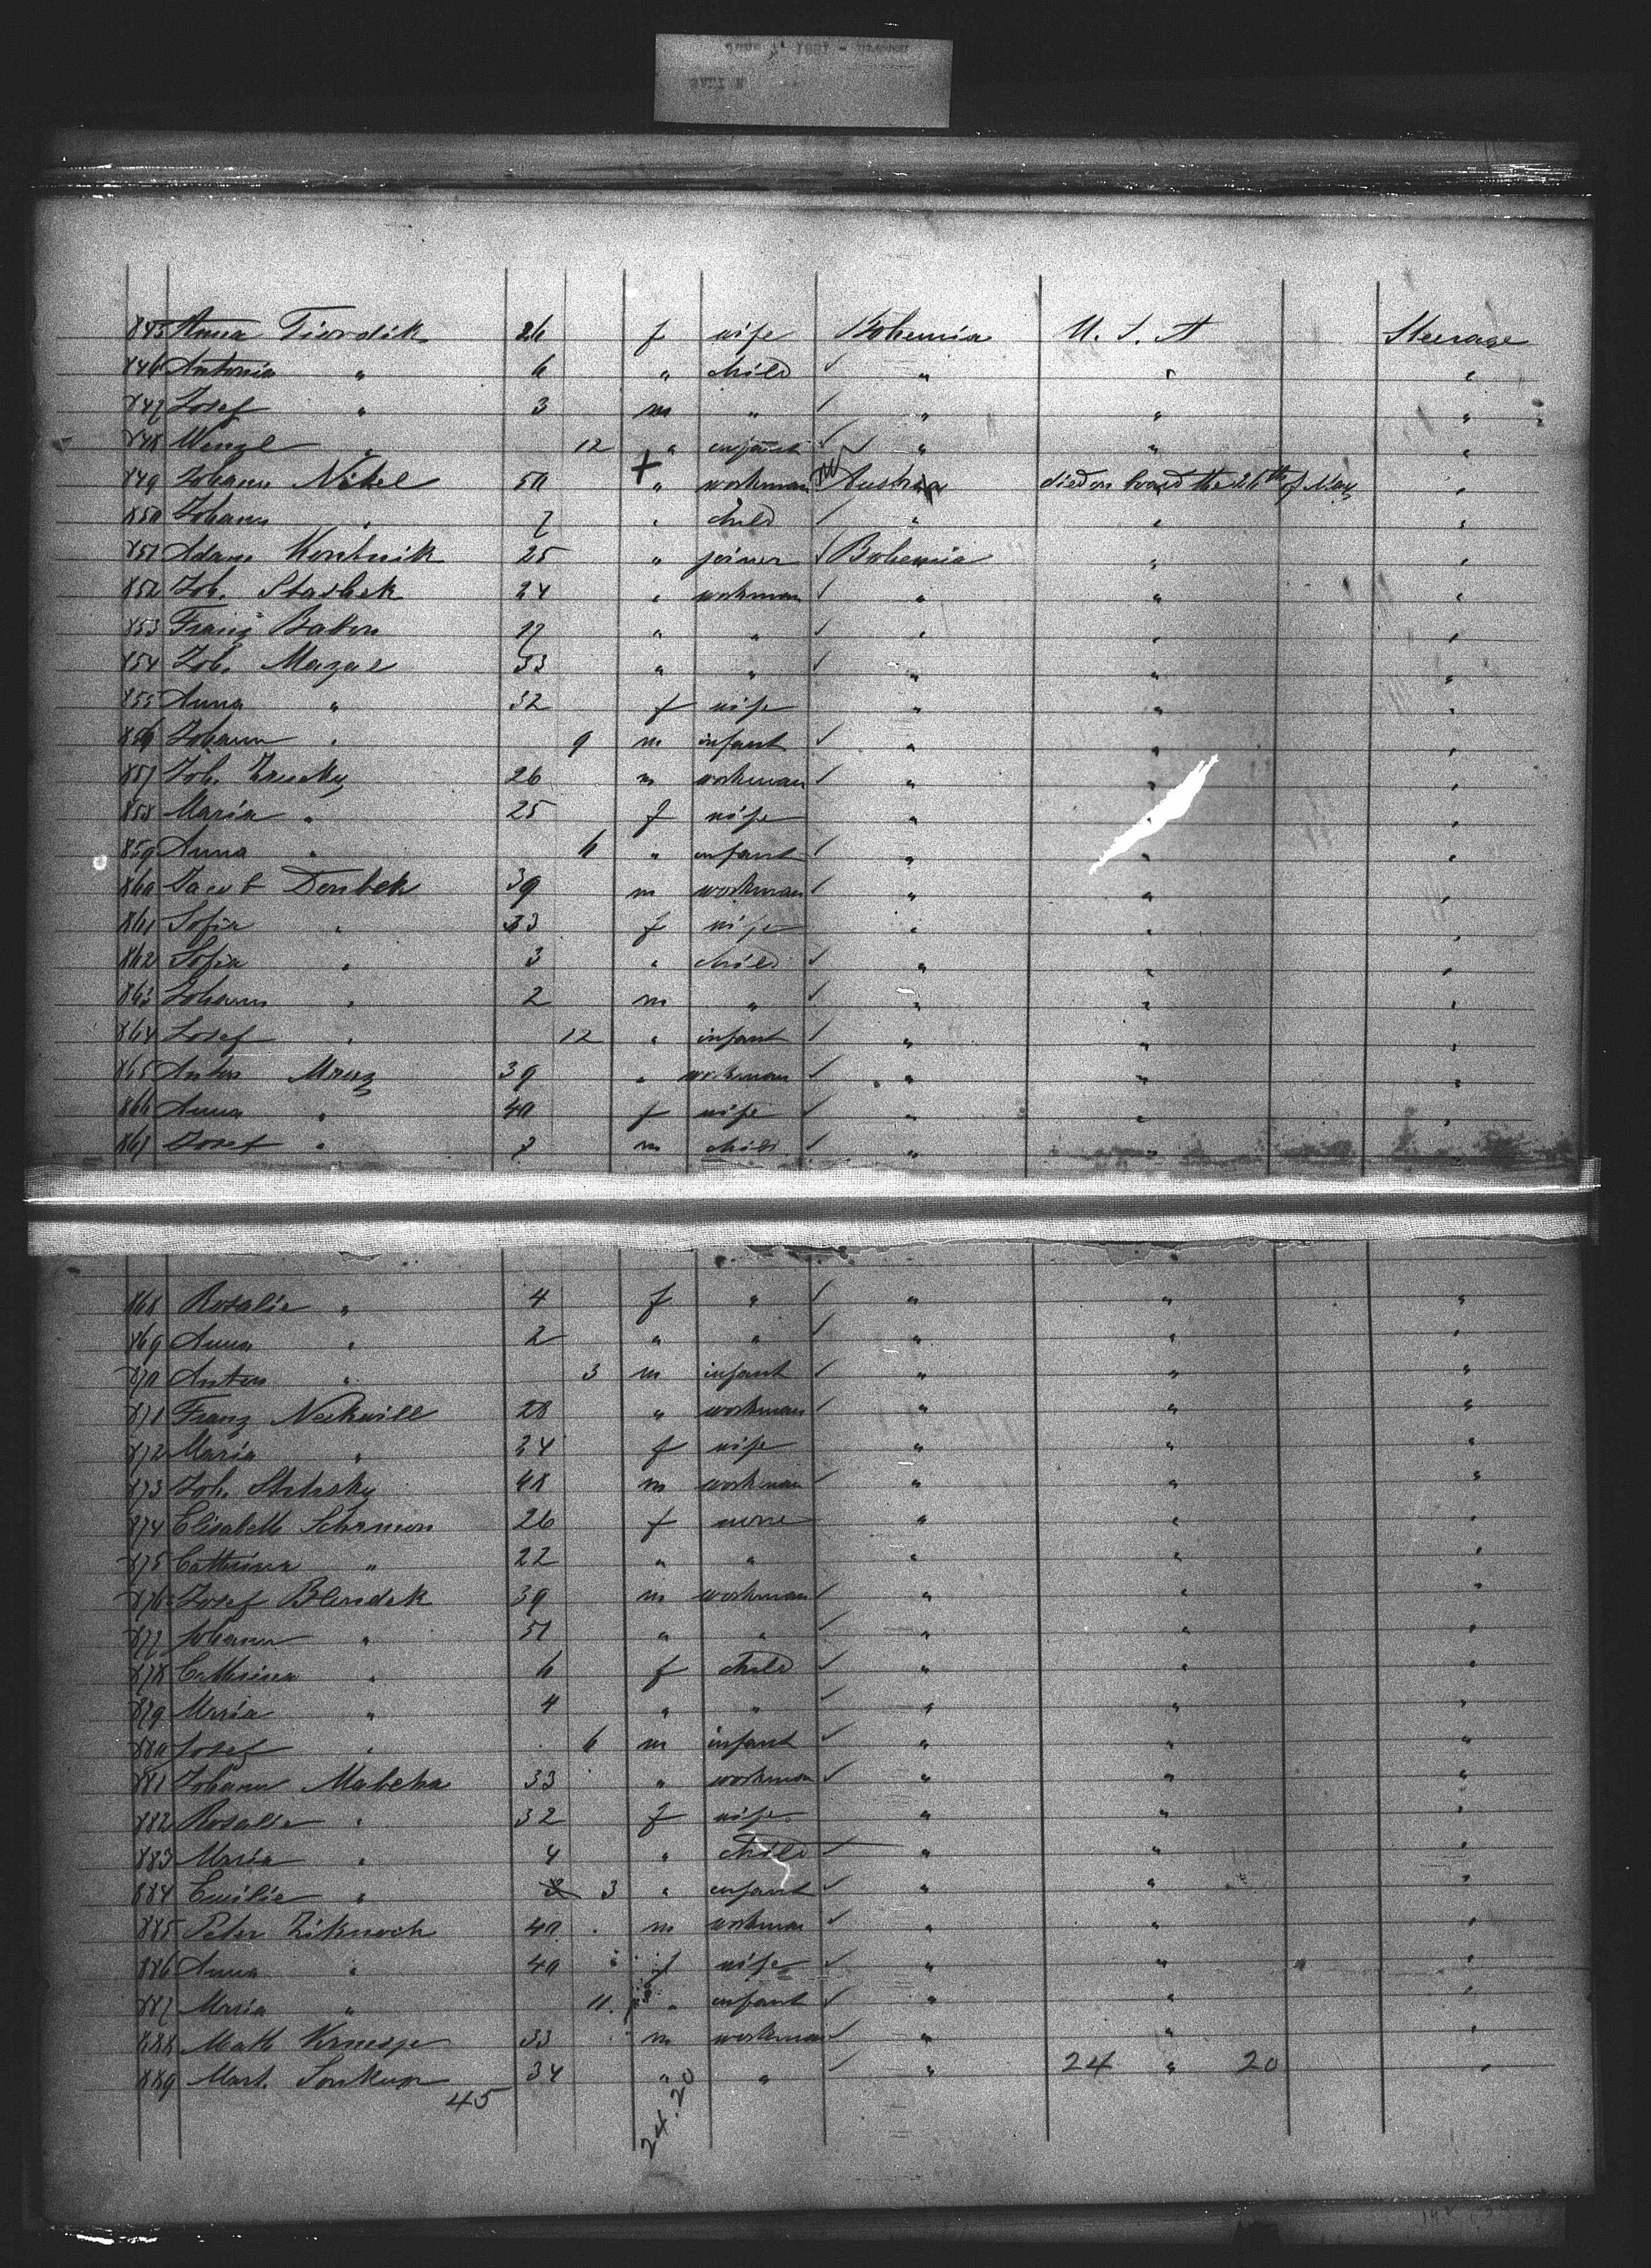 845 Anna Tiordik 26 f wife Bohemia U. S. A Steerage
846 Antonia " 6 " child ✓ " " "
847 Josef " 3 m " ✓ " " "
848 Wenzl " 12 " infant ✓ ✓ " " "
849 Johann Nikel 50 + " workman Austria died on board the 26th of May "
850 Johann " 7 " child ✓ " " "
851 Adam 25 " joiner ✓ Bohemia " "
852 Joh. 24 " workman ✓ " " "
853 Franz 27 " " ✓ " " "
854 Joh. Mazal 33 " " ✓ " " "
855 Anna " 32 f wife " " "
856 Johann " 9 m infant ✓ " " "
857 Joh. 26 m workman ✓ " " "
858 Maria " 25 f wife " " "
859 Anna " 6 " infant ✓ " " "
860 Jacob Doubek 39 m workman ✓ " " "
861 Sofia " 33 f wife " " "
862 Sofia " 3 " child ✓ " " "
863 Johann " 2 m " ✓ " " "
864 Josef " 12 " infant ✓ " " "
865 Anton Mraz 39 " workman ✓ " " "
866 Anna " 40 f wife ✓ " " "
867 Josef " 7 m child ✓ " "
868 Rosalie " 4 f " ✓ " " "
869 Anna " 2 " " ✓ " " "
870 Anton " 3 m infant ✓ " " "
871 Franz Neckwill 28 " workman ✓ " " "
872 Maria " 24 f wife " " "
873 Joh. 48 m workman ✓ " " "
874 Elisabeth Schramon 26 f none " " "
875 Catherina " 22 " " " " "
876 Josef Blendek 39 m workman ✓ " " "
877 Johann " 51 " " ✓ " " "
878 Catherina " 6 f child ✓ " " "
879 Maria " 4 " " ✓ " " "
880 Josef " 6 m infant ✓ " " "
881 Johann Mabcha 33 " workman ✓ " " "
882 Rosalie " 32 f wife " " "
883 Maria " 4 " child ✓ " " "
884 Emilie " 3 " infant ✓ " " "
885 Peter 40 m workman ✓ " " "
886 Anna " 40 f wife ✓ " " " "
887 Maria " 11 " infant ✓ " " "
888 Math 33 m workman ✓ " " "
889 Mart. Soukup 34 " " ✓ " 24 " 20 "
45 24.20